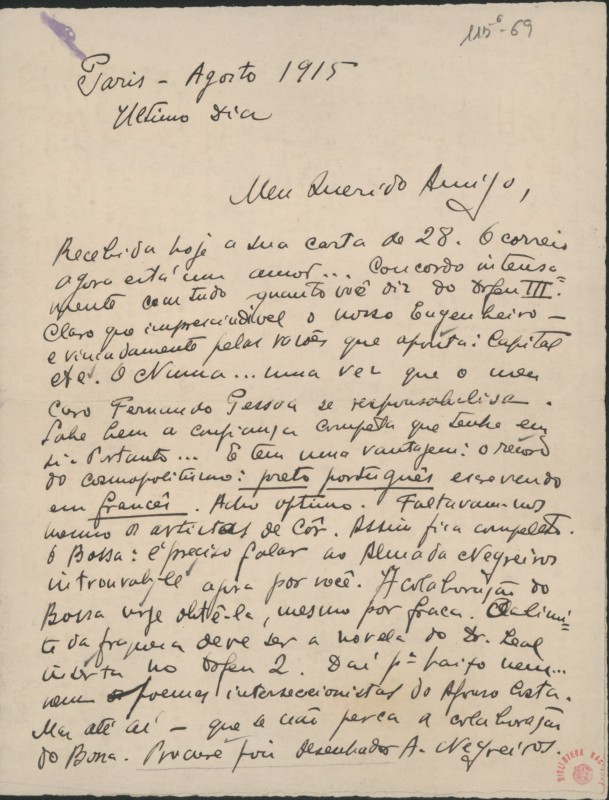 115⁶-69
Paris - Agosto 1915
Ultimo Dia
Meu Querido Amigo,
Recebida hoje a sua carta de 28. O correio
agora está um amor... Concordo intensa-
mente com tudo quanto você diz do Orfeu III.
Claro que imprescindivel o nosso Engenheiro —
e vincadamente pelas razões que aponta: Capital
etc. O Numa... uma vez que o meu
caro Fernando Pessoa se responsabilisa.
Sabe bem a confiança completa que tenho em
si. Portanto... E tem uma vantagem: o record
do cosmopolitismo: preto português escrevendo
em francês. Acho optimo. Faltavam-nos
mesmo os artistas de Côr. Assim fica completo.
O Bossa: é preciso falar ao Almada Negreiros
introuvable agora por você. A colaboração do
Bossa urge obtê-la, mesmo por fraca. O limi-
te da fraqueza deve ser a novela do Dr. Leal
inserta no Orfeu 2. Daí pª baixo nem...
nem poemas interseccionistas do Afonso Costa.
Mas até aí — que se não perca a colaboração
do Bossa. Procure pois desenhador A. Negreiros.